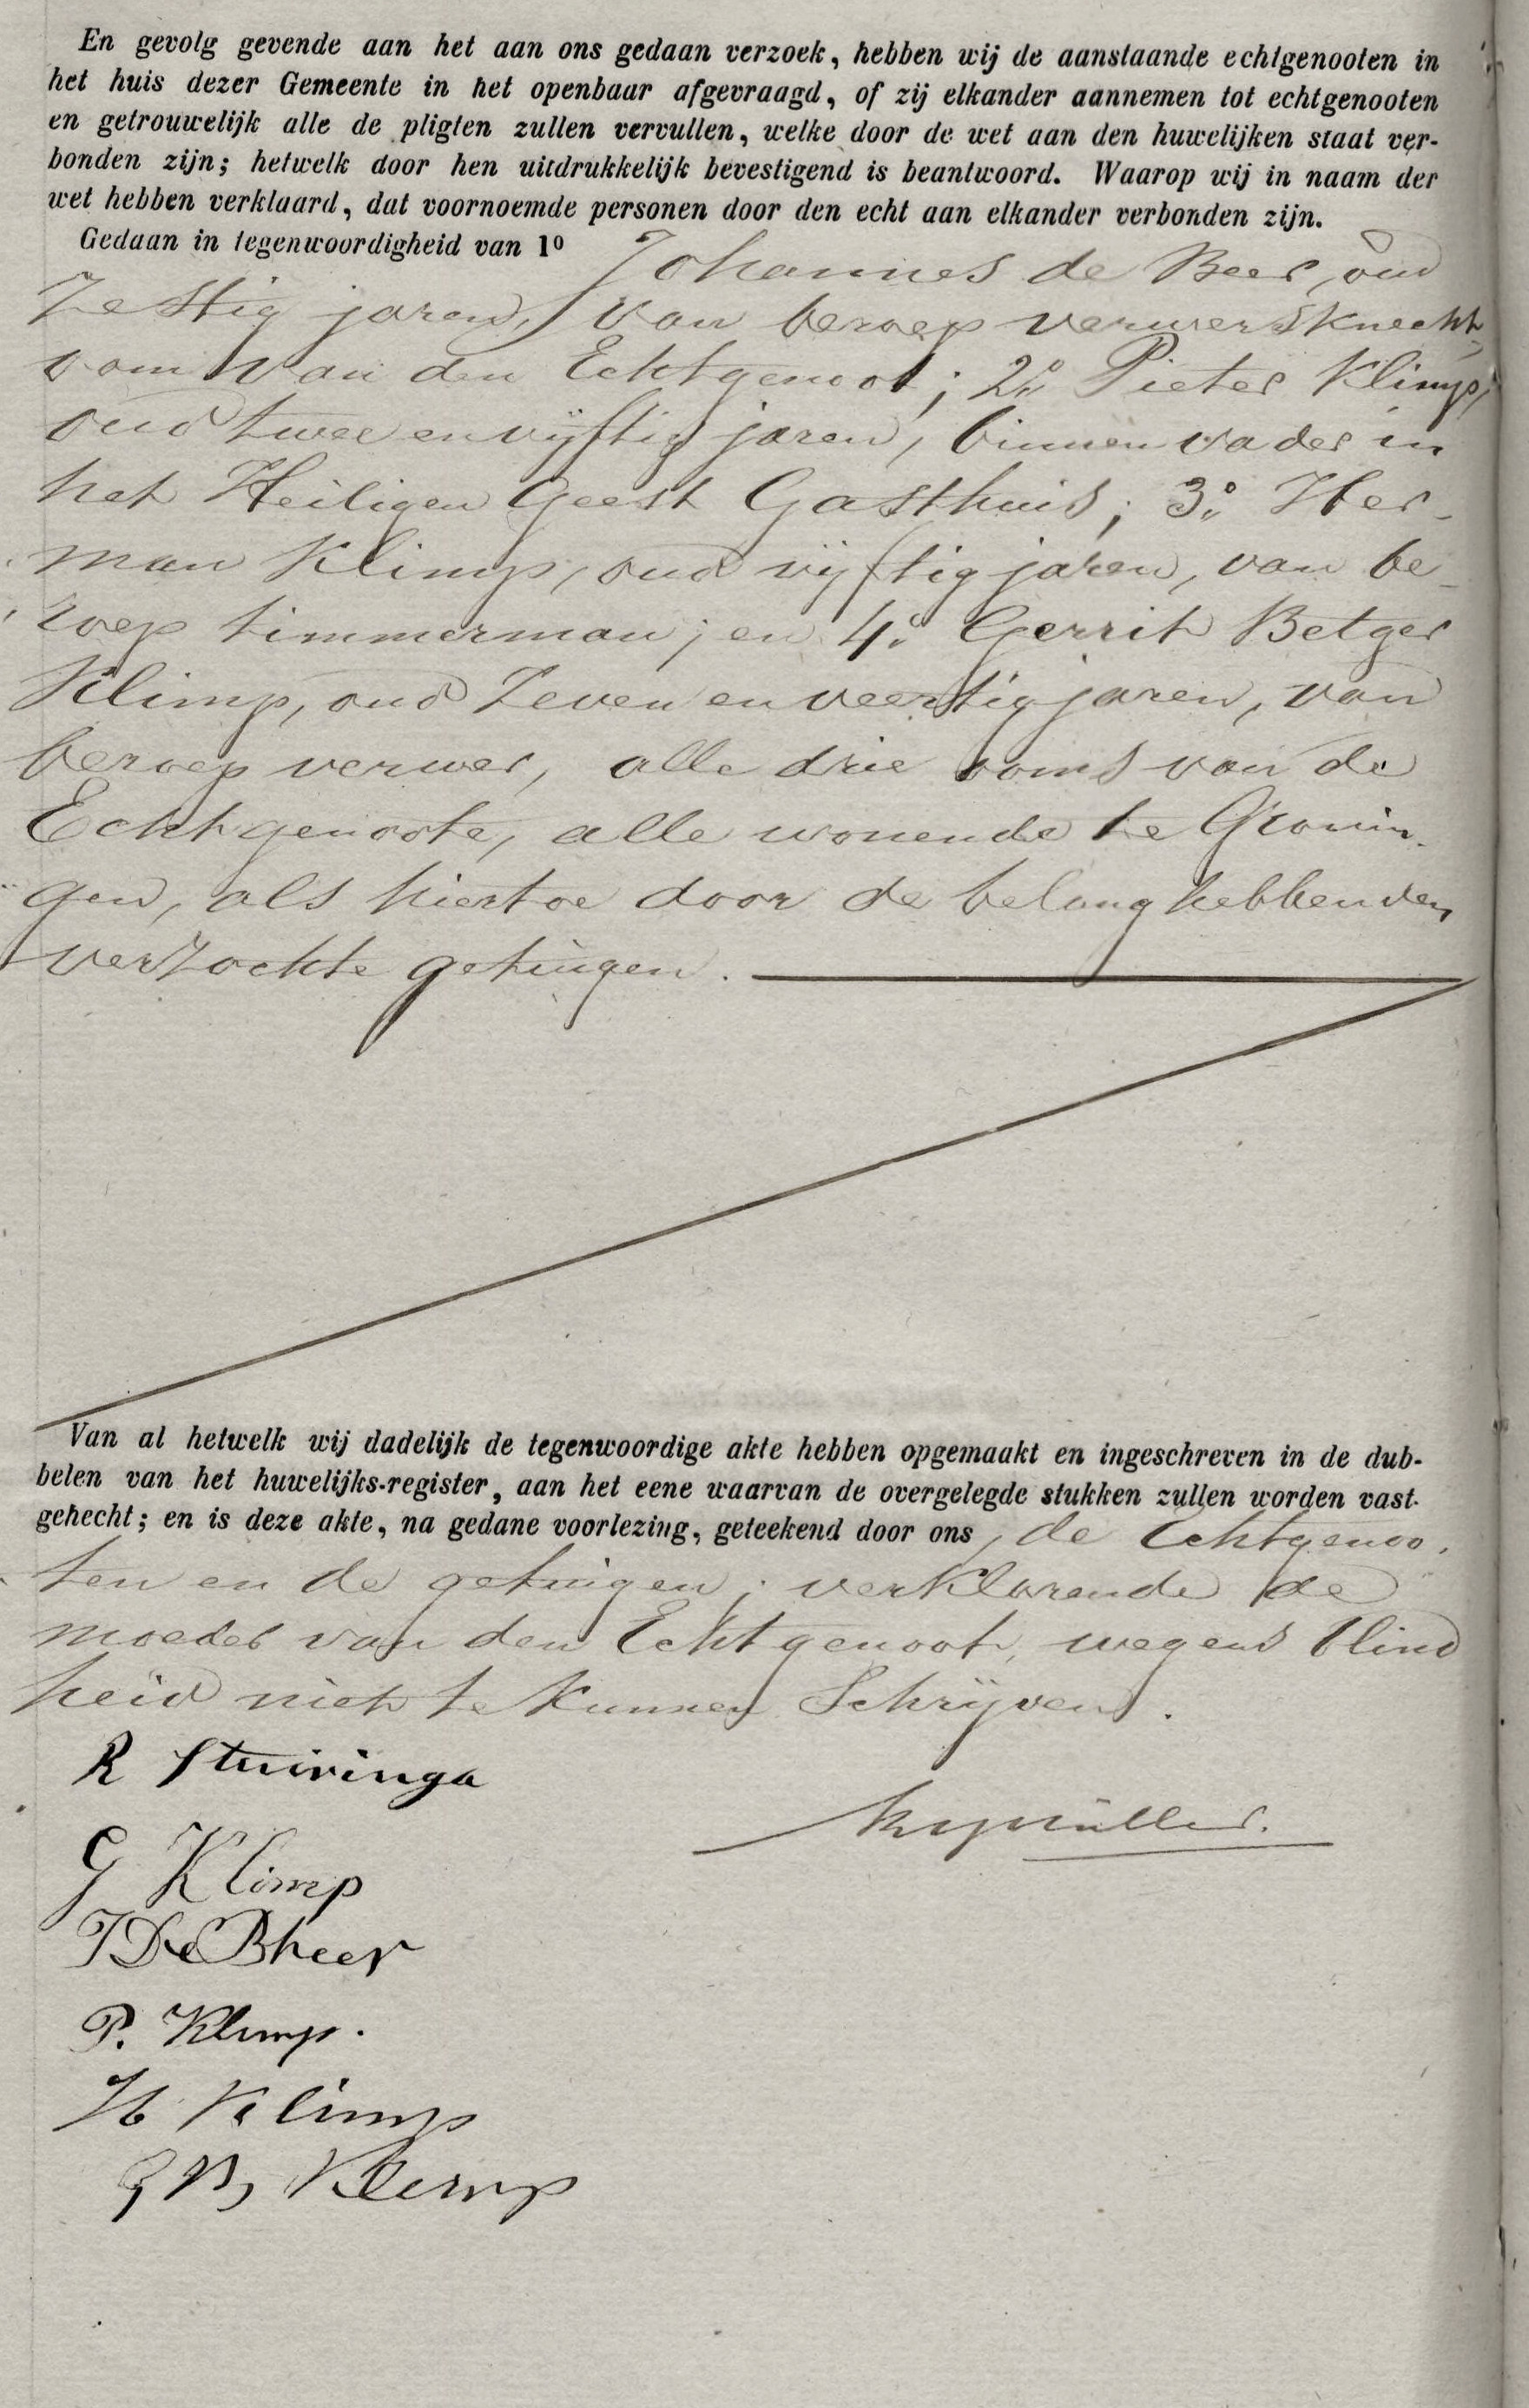 En gevolg gevende aan het aan ons gedaan verzoek, hebben wij de aanstaande echtgenooten in
het huis dezer Gemeente in het openbaar afgevraagd, of zij elkander aannemen tot echtgenooten
en getrouwelijk alle de pligten zullen vervullen, welke door de wet aan den huwelijken staat ver-
bonden zijn; hetwelk door hen uitdrukkelijk bevestigend is beantwoord. Waarop wij in naam der
wet hebben verklaard, dat voornoemde personen door den echt aan elkander verbonden zijn.
Gedaan in tegenwoordigheid van 1º Johannes de Beer, oud
Zestig jaren, van beroep verwersknecht,
oom van den Echtgenoot; 2º Pieter Klimp,
oud twee en vijftig jaren, binnenvader in
het Heiligen Geest Gasthuis; 3º Her-
man Klimp, oud vijftig jaren, van be-
roep timmerman; en 4º Gerrit Betger
Klimp, oud Zeven en veertig jaren, van
beroep verwer, alle drie ooms van de
Echtgenoote, alle wonende te Gronin-
gen, als hiertoe door de belanghebbenden
verzochte getuigen.
Van al hetwelk wij dadelijk de tegenwoordige akte hebben opgemaakt en ingeschreven in de dub-
belen van het huwelijks-register, aan het eene waarvan de overgelegde stukken zullen worden vast-
gehecht; en is deze akte, na gedane voorlezing, geteekend door ons, de Echtgenoo-
ten en de getuigen; verklarende de
moeder van den Echtgenoot, wegens blind
heid niet te kunnen Schrijven.
R Stuiringa
Müller.
G Klimp
J De Bheer
P. Klimp.
H Klimp
G B, Klemp